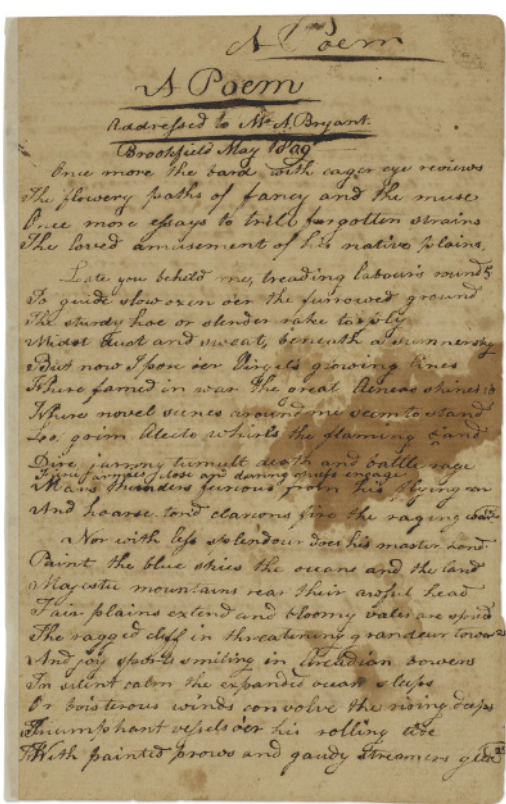 A Poem
A Poem
Addressed to Mr A. Bryant.
Brookfield May 1809
Once more the bard with eager eye reviews
The flowery paths of fancy and the muse
Once more essays to trill forgotten strains
The loved amusement of his native plains.
Late you beheld me, treading labour's round 5
To guide slow oxen o'er the furrowed ground
The sturdy hoe or slender rake to ply
Midst dust and sweat, beneath a summer sky
But now I pore o'er Virgil's glowing lines
Where famed in war the great Aeneas shines 10
Where novel scenes around me seem to stand
Lo: grim Alecto whirls the flaming brand
Dire jarring tumult death and battle rage
Fierce armies close and daring chiefs engage
Mars thunders furious from his flying car
And hoarse-ton'd clarions fire the raging war 15
Nor with less splendour does his master hand
Paint the blue skies the oceans and the land
Majestic mountains rear their awful head
Fair plains extend and bloomy vales are spread
The ragged cliff in threatening grandeur towers 20
And joy sports smiling in Arcadian bowers
In silent calm the expanded ocean sleeps
Or boisterous winds convolve the rising deeps
Triumphant vessels o'er his rolling tide
With painted prows and gaudy streamers glide 25